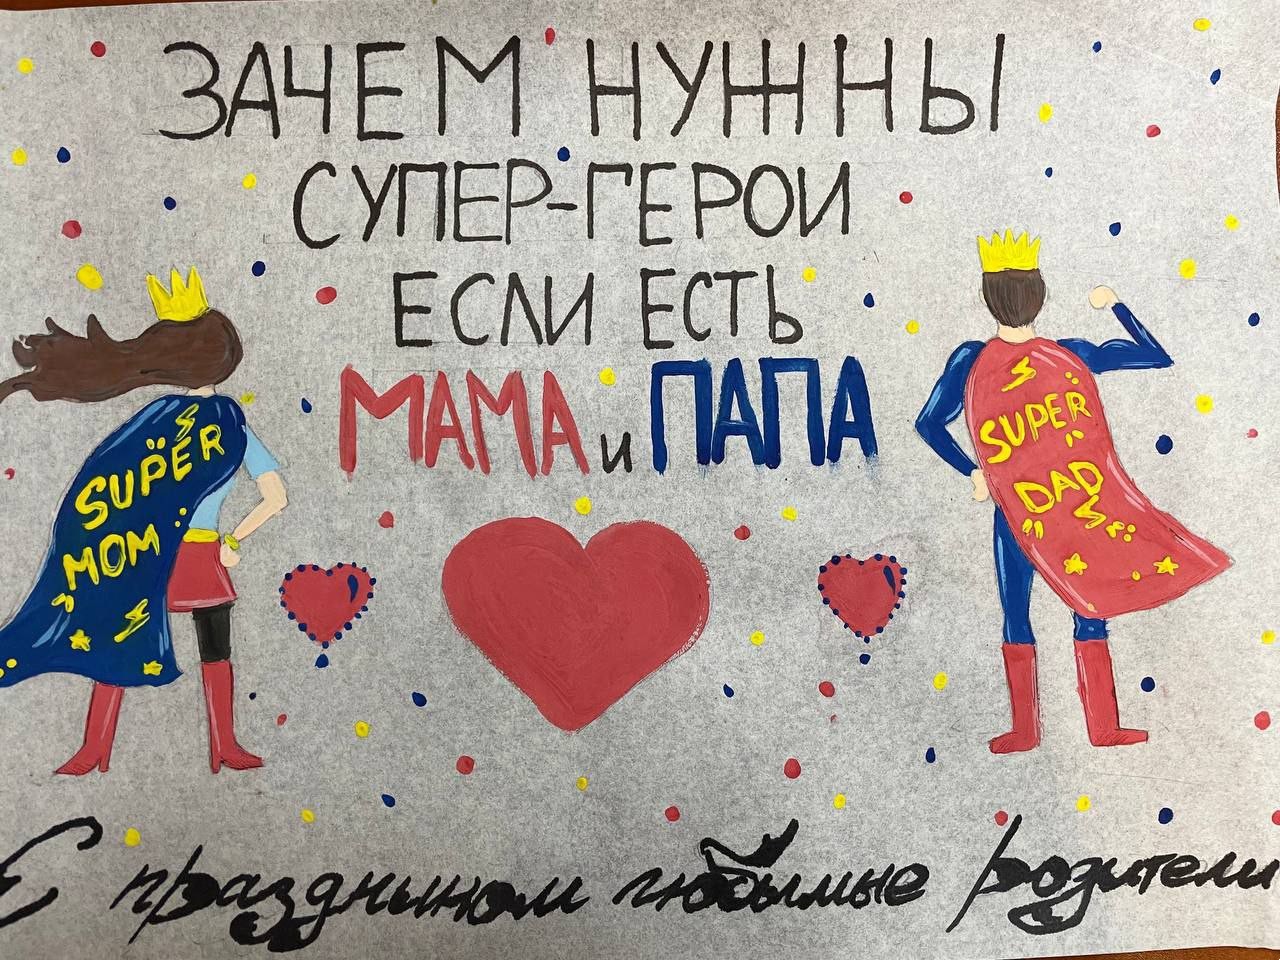 ЗАЧЕМ НУЖНЫ
СУПЕР-ГЕРОИ
ЕСЛИ ЕСТЬ
МАМА и ПАПА
SUPER
MOM
SUPER
DAD
С праздником любимые родители